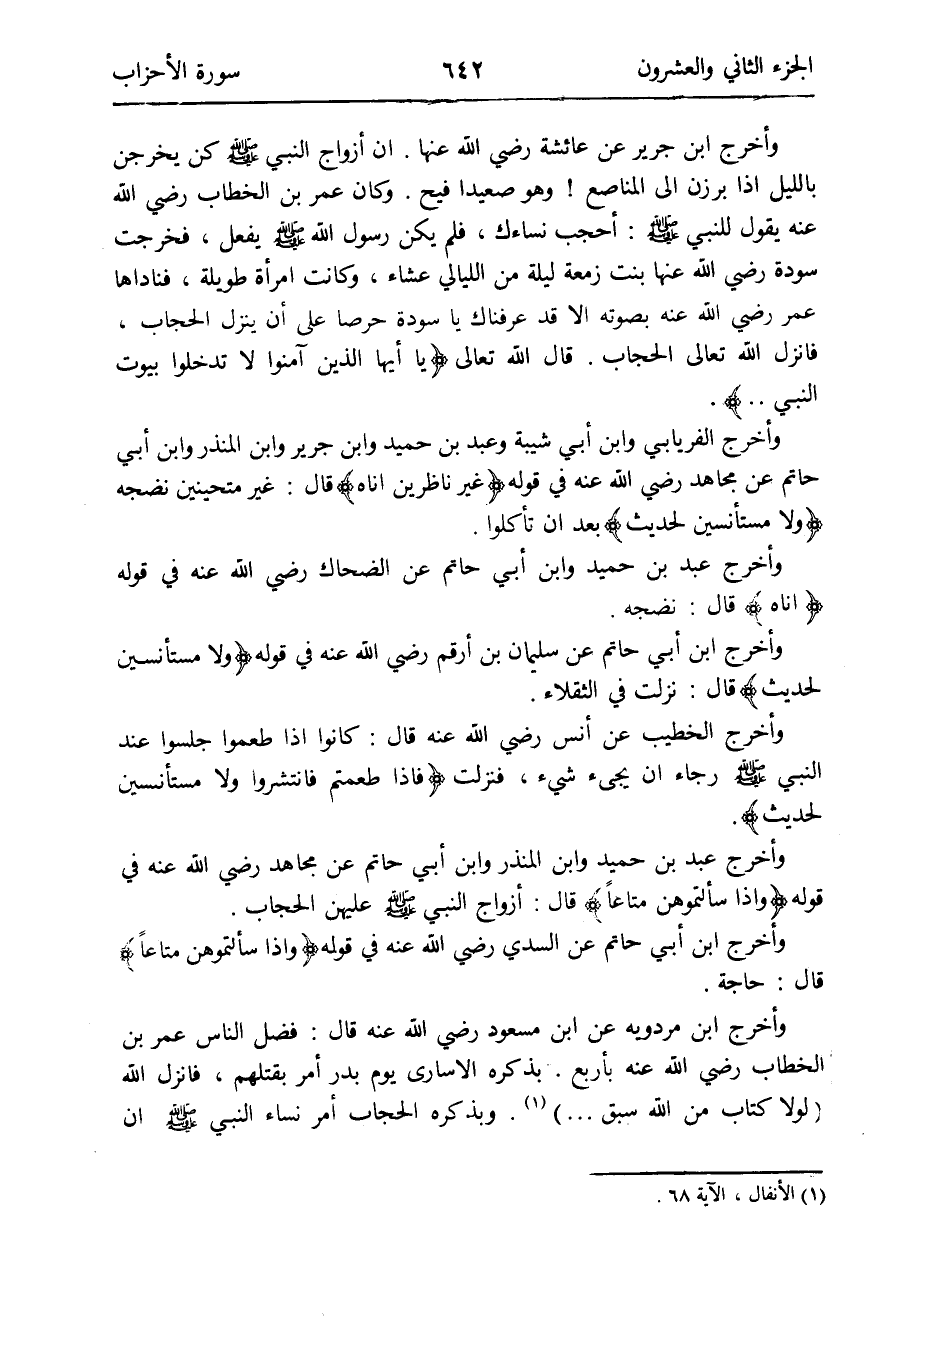 الجزء الثاني والعشرون ٦٤٢ سورة الأحزاب
وأخرج ابن جرير عن عائشة رضي الله عنها . ان أزواج النبي ﷺ كن يخرجن
بالليل اذا برزن الى المناصع ! وهو صعيدا فيح . وكان عمر بن الخطاب رضي الله
عنه يقول للنبي ﷺ : أحجب نساءك ، فلم يكن رسول الله ﷺ يفعل ، فخرجت
سودة رضي الله عنها بنت زمعة ليلة من الليالي عشاء ، وكانت امرأة طويلة ، فناداها
عمر رضي الله عنه بصوته الا قد عرفناك يا سودة حرصا على أن ينزل الحجاب ،
فانزل الله تعالى الحجاب . قال الله تعالى ﴿يا أيها الذين آمنوا لا تدخلوا بيوت
النبي .. ﴾ .
وأخرج الفريابي وابن أبي شيبة وعبد بن حميد وابن جرير وابن المنذر وابن أبي
حاتم عن مجاهد رضي الله عنه في قوله ﴿غير ناظرين اناه﴾ قال : غير متحينين نضجه
﴿ولا مستأنسين لحديث﴾ بعد ان تأكلوا .
وأخرج عبد بن حميد وابن أبي حاتم عن الضحاك رضي الله عنه في قوله
﴿ اناه ﴾ قال : نضجه .
وأخرج ابن أبي حاتم عن سليمان بن أرقم رضي الله عنه في قوله ﴿ولا مستأنسين
لحديث﴾ قال : نزلت في الثقلاء .
وأخرج الخطيب عن أنس رضي الله عنه قال : كانوا اذا طعموا جلسوا عند
النبي ﷺ رجاء ان يجيء شيء ، فنزلت ﴿فاذا طعمتم فانتشروا ولا مستأنسين
لحديث﴾ .
وأخرج عبد بن حميد وابن المنذر وابن أبي حاتم عن مجاهد رضي الله عنه في
قوله ﴿واذا سألتموهن متاعاً﴾ قال : أزواج النبي ﷺ عليهن الحجاب .
وأخرج ابن أبي حاتم عن السدي رضي الله عنه في قوله ﴿واذا سألتموهن متاعاً﴾
قال : حاجة .
وأخرج ابن مردويه عن ابن مسعود رضي الله عنه قال : فضل الناس عمر بن
الخطاب رضي الله عنه بأربع . بذكره الاسارى يوم بدر أمر بقتلهم ، فانزل الله
( لولا كتاب من الله سبق ...) (١) . وبذكره الحجاب أمر نساء النبي ﷺ ان
(١) الأنفال ، الآية ٦٨ .